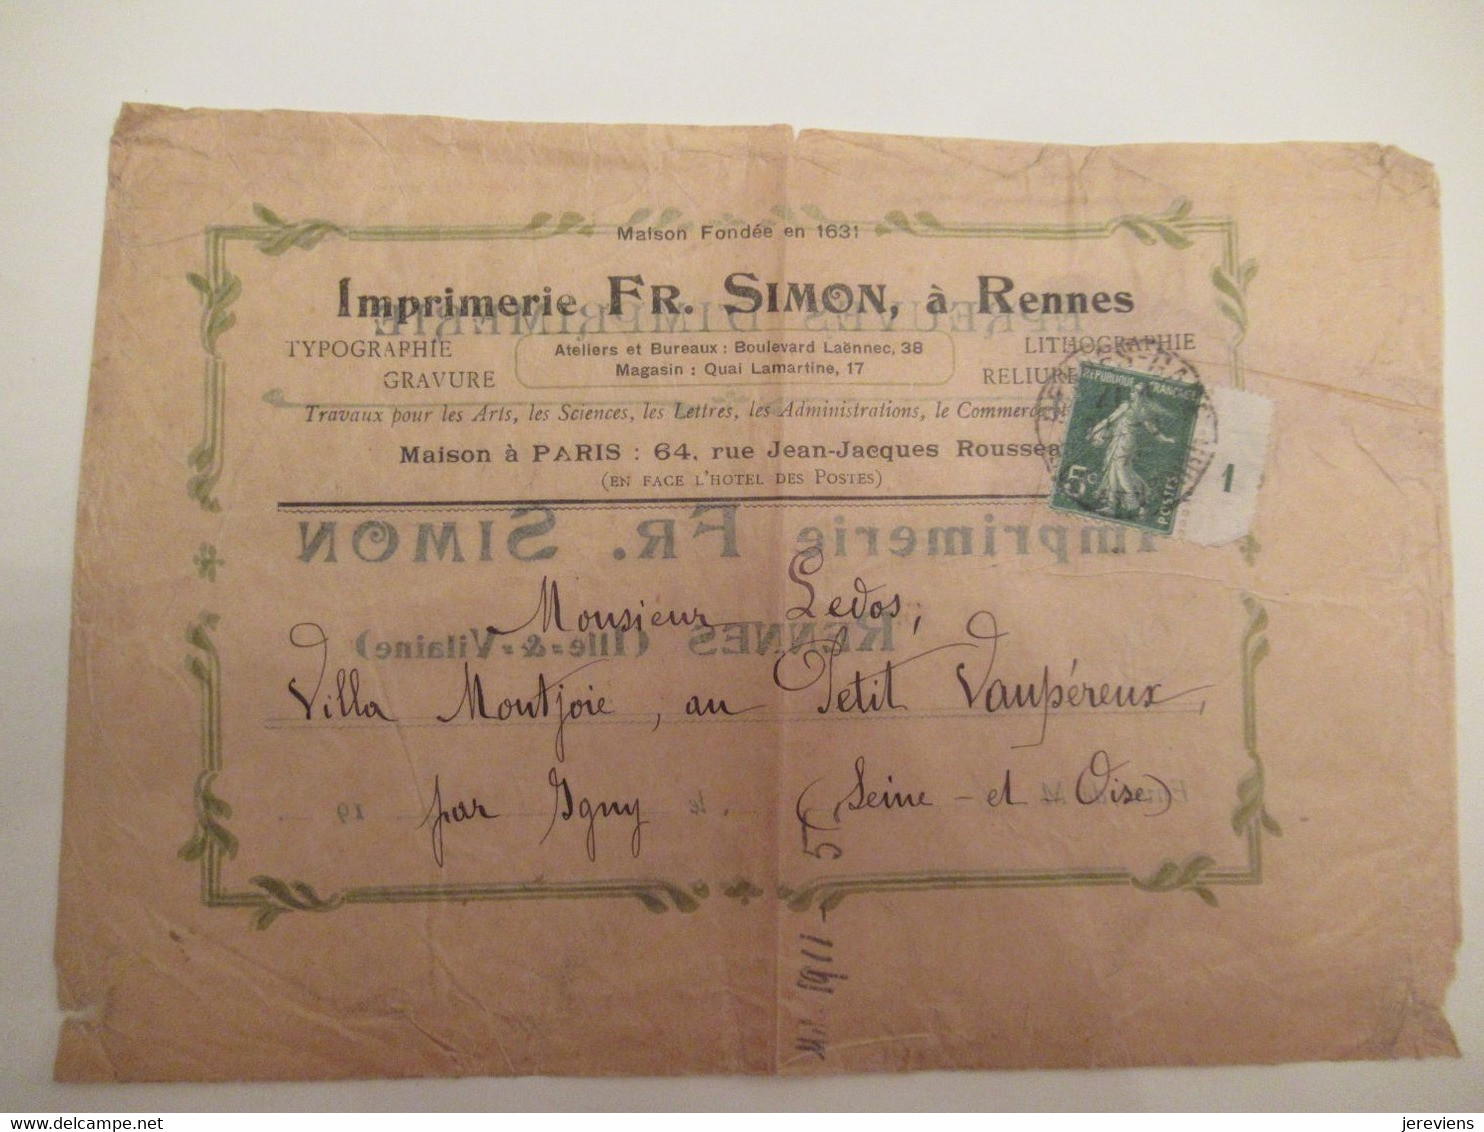 Maison Fondée en 1631
Imprimerie FR. SIMON, à Rennes
EPREUVES D'IMPRIMERIE
TYPOGRAPHIE
GRAVURE
Ateliers et Bureaux : Boulevard Laënnec, 38
Magasin : Quai Lamartine, 17
LITHOGRAPHIE
RELIURE
Travaux pour les Arts, les Sciences, les Lettres, les Administrations, le Commerce
Maison à PARIS : 64, rue Jean-Jacques Roussea
(EN FACE L'HOTEL DES POSTES)
REPUBLIQUE FRANÇAISE
5c
POSTES
1
Imprimerie FR. SIMON
RENNES (Ille-&-Vilaine)
Monsieur Ledos,
Villa Montjoie, au Petit Vaupéreux,
par Igny (Seine-et Oise)
le 19
delcampe.net
jereviens